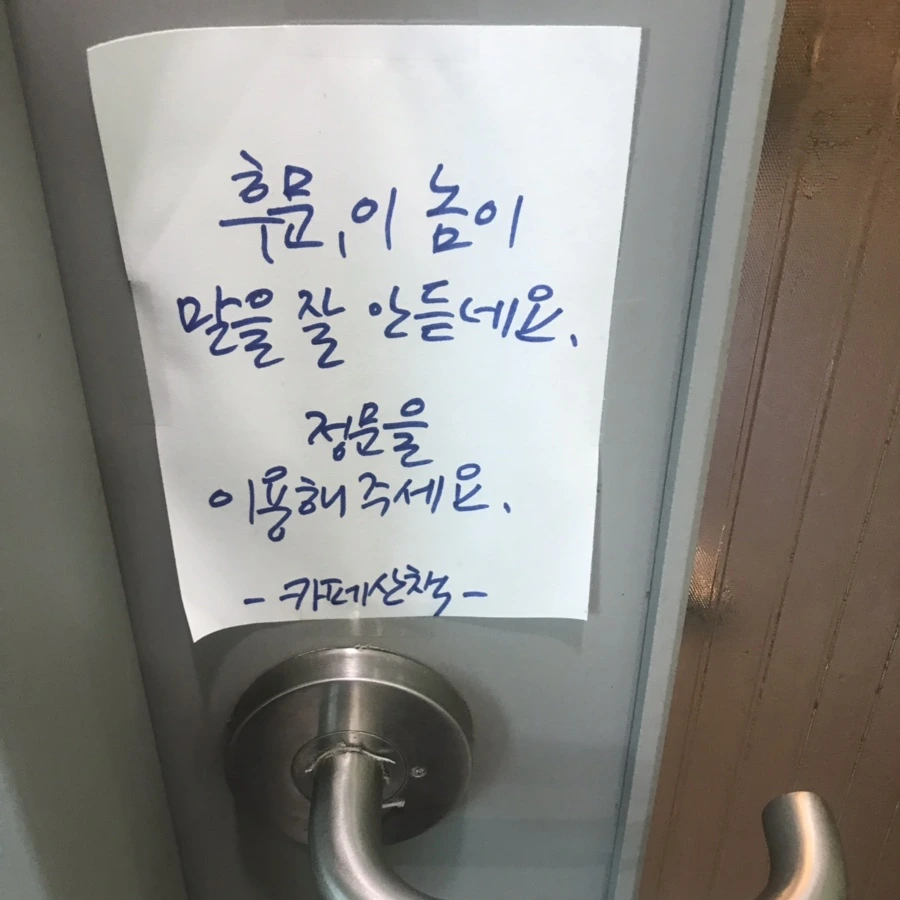 후문, 이 놈이
말을 잘 안듣네요.
정문을
이용해 주세요.
- 카페산책 -